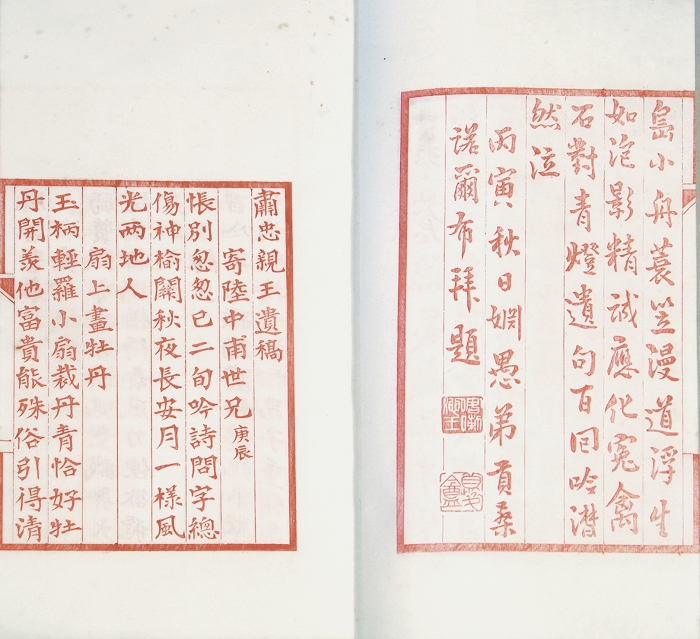 島小舟蓑笠漫道浮生
如泡影精诚應化冤禽
石對青燈遺句百回吟潸
然泣
丙寅秋日姻愚弟貢桑
諾爾布拜題
肅忠親王遺稿
寄陸中甫世兄庚辰
悵別怱怱已二旬吟詩問字總
傷神榆關秋夜長安月一樣風
光兩地人
扇上畫牡丹
玉柄輕羅小扇裁丹青恰好牡
丹開羨他富貴能殊俗引得清